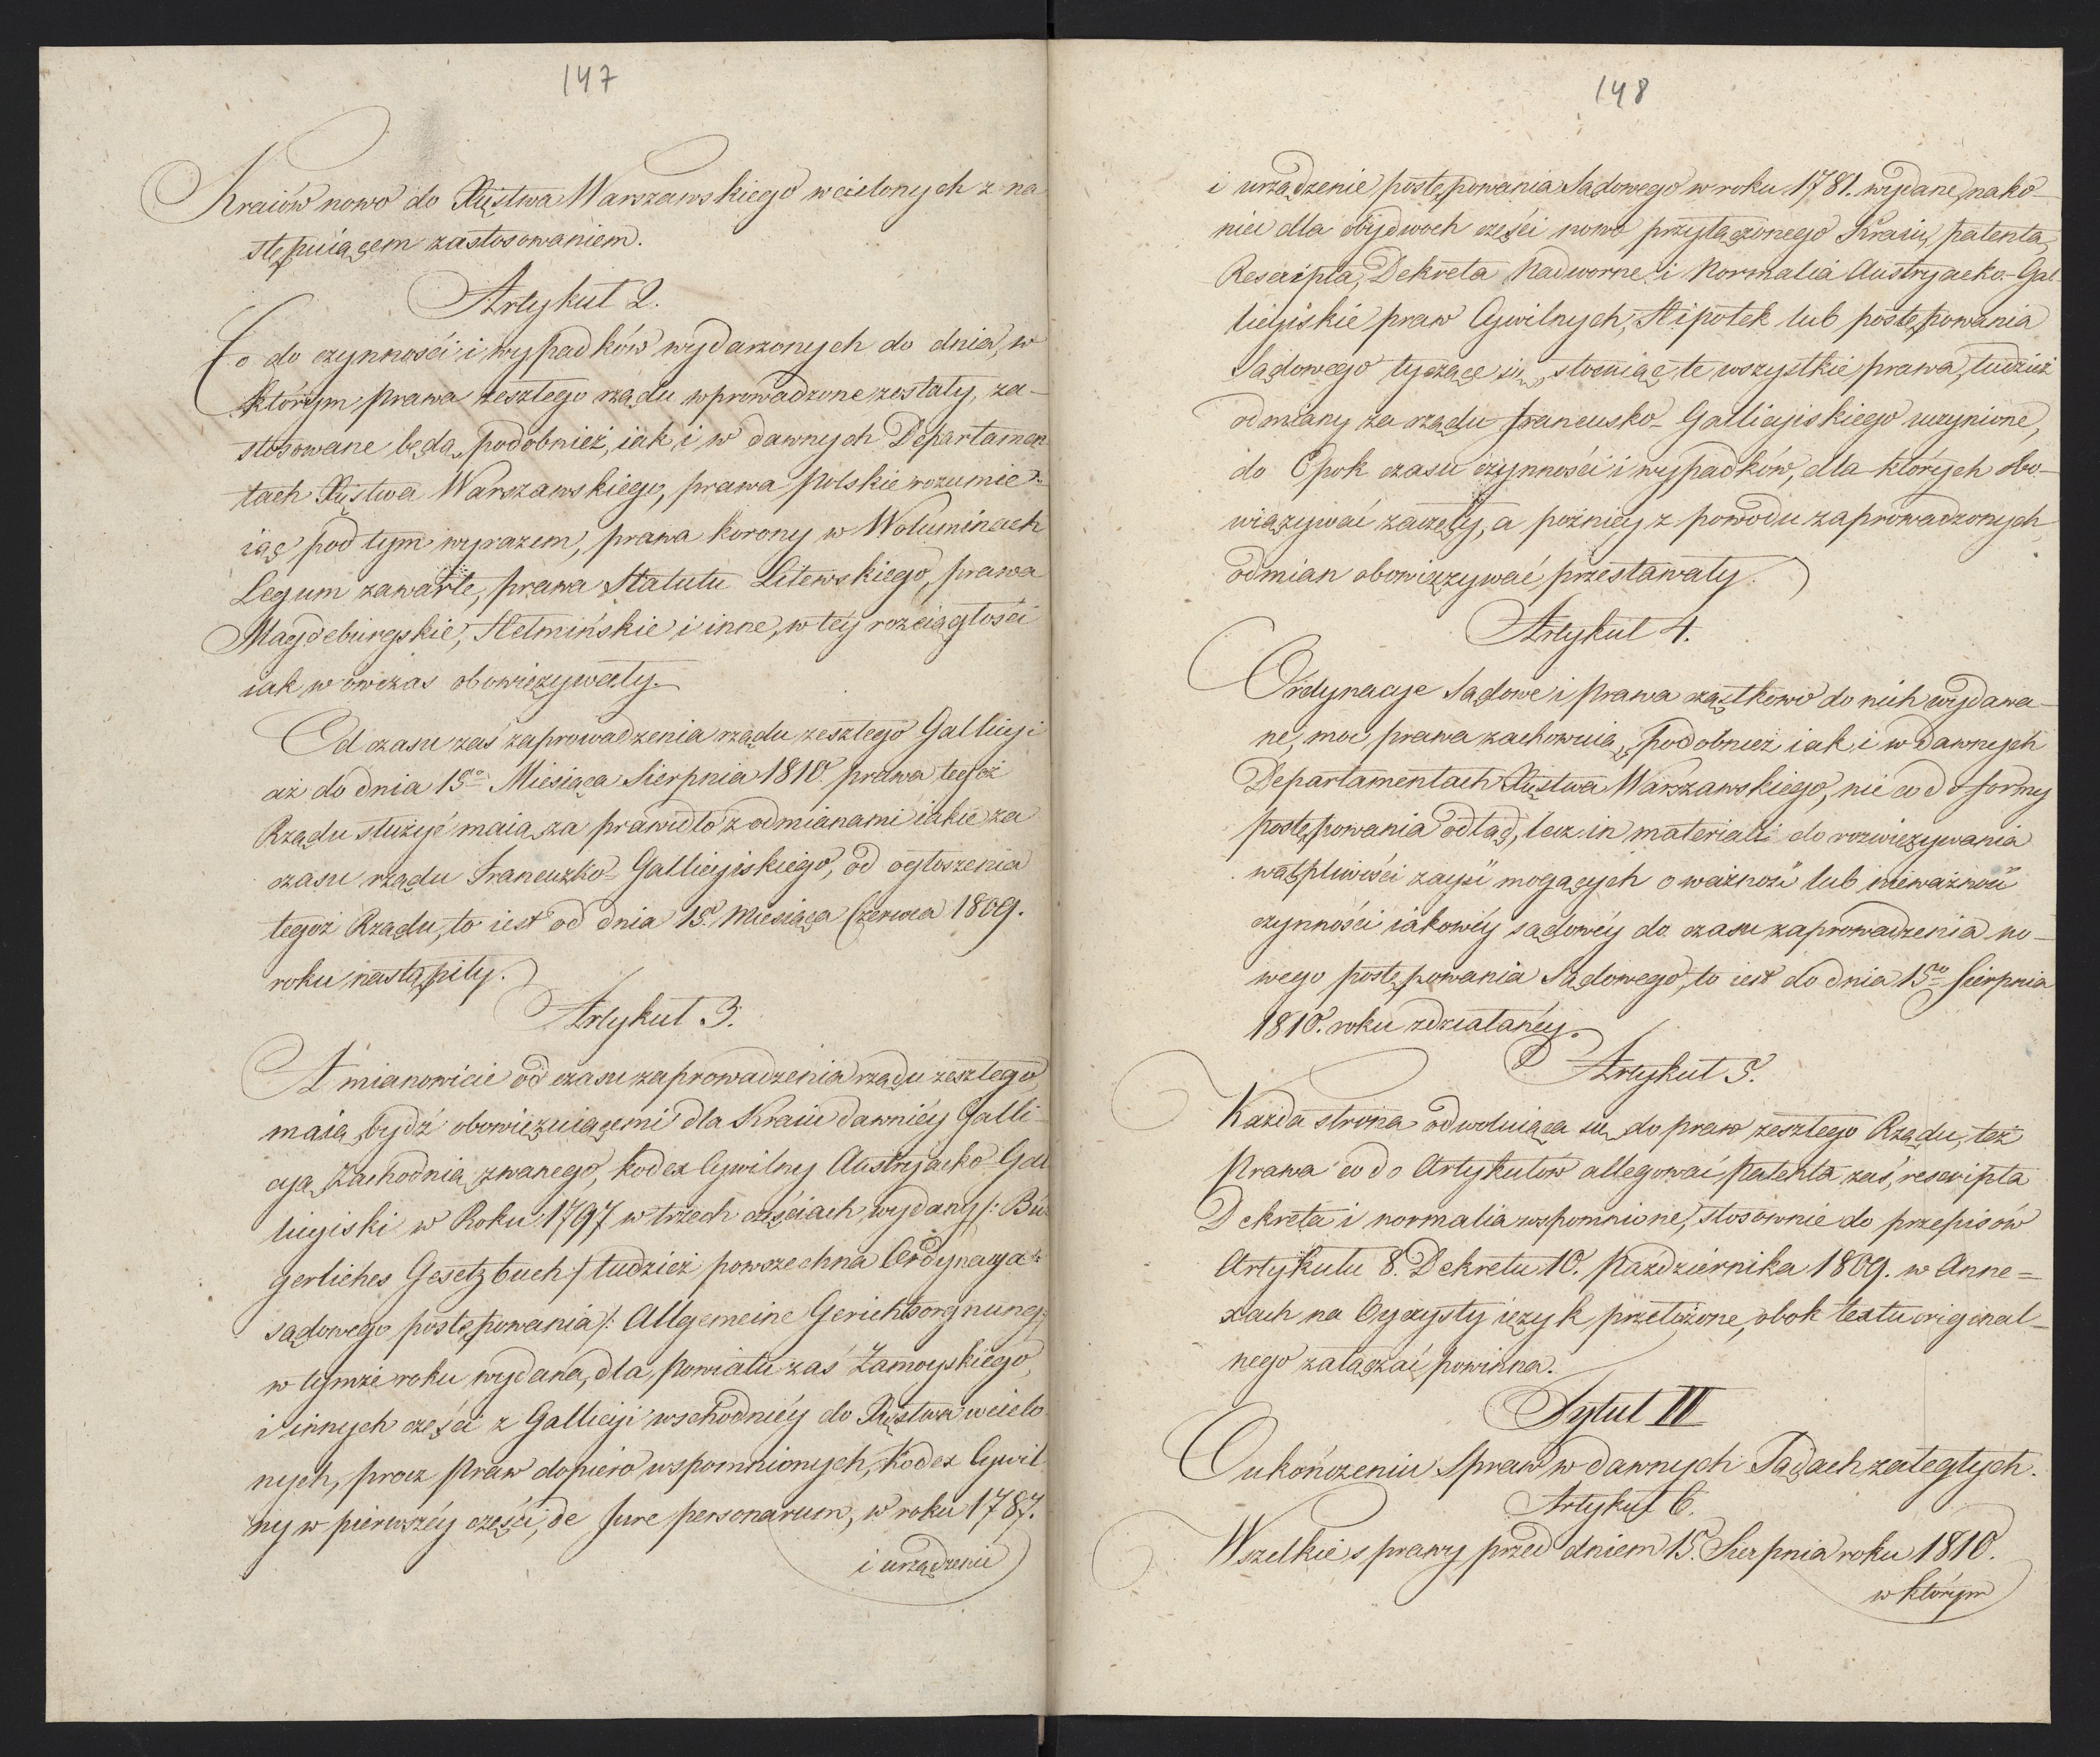 147
Kraiów nowo do Xięstwa Warszawskiego wcielonych z na
stępuiącem zastosowaniem.
Artykuł 2.
Co do czynności i wypadków wydarzonych do dnia, w
którym prawa zeszłego rządu wprowadzone zostały, za-
stosowane będą podobnież, iak i w dawnych Departamen
tach Xięstwa Warszawskiego, prawa polskie rozumie-
iąc pod tym wyrazem, prawa korony w Woluminach
Legum zawarte, prawa Statutu Litewskiego, prawa
Magdeburgskie, Hełmińskie i inne, w téy rozciągłości
iak w ówczas obowięzywały.
Od czasu zaś zaprowadzenia rządu zeszłego Gallicyi
aż do dnia 15º Miesiąca Sierpnia 1810. prawa tegoż
Rządu służyć maią za prawidło z odmianami iakie za
czasu rządu Francuzko-Gallicyiskiego, od ogłoszenia
tegoż Rządu, to iest od dnia 15. Miesiąca Czerwca 1809.
roku nastąpiły.
Artykuł 3.
A mianowicie od czasu zaprowadzenia rządu zeszłego
maią bydź obowięzuiącemi dla Kraiu dawniéy Galli-
cyą Zachodnią zwanego, kodex Cywilny Austryacko-Gal
licyiski w Roku 1797 w trzech częściach wydany /: Bür
gerliches Gesetzbuch / tudzież powszechna Ordynacya
sądowego postępowania /: Allgemeine Gerichtsorgnung /
w tymże roku wydana, dla powiatu zaś Zamoyskiego,
i innych części z Gallicyi wschodniéy do Xięstwa wcielo
nych, prócz praw dopiero wspomnionych, Kodex Cywil
ny w pierwszéy części, de Jure personarum, w roku 1787.
i urządzenie
148
i urządzenie postępowania Sądowego w roku 1781. wydane, nako-
niec dla obydwoch części nowo przyłączonego Kraiu, patenta,
Rescripta, Dekreta Nadworne i Normalia Austryacko-Gal-
licyiskie praw Cywilnych, Hipotek lub postępowania
Sądowego tyczące się, stosuiąc te wszystkie prawa, tudzież
odmiany za rządu francusko-Gallicyiskiego uczynione,
do Epok czasu czynności i wypadków, dla których obo-
wiązywać zaczęły, a późniéy z powodu zaprowadzonych
odmian obowięzywać przestawały.
Artykuł 4.
Ordynacye Sądowe i prawa cząstkowo do nich wydawa-
ne, moc prawa zachowuią, podobnież iak i w dawnych
Departamentach Xięstwa Warszawskiego, nie co do formy
postępowania odtąd, lecz in materiali do rozwięzywania
wątpliwości zayść mogących o ważność lub nieważność
czynności iakowéy sądowéy do czasu zaprowadzenia no-
wego postępowania Sądowego, to iest do dnia 15º Sierpnia
1810. roku zdziałanéy.
Artykuł 5.
Każda strona odwołuiąca się do praw zeszłego Rządu, też
prawa co do Artykułów allegować, patenta zaś, rescripta
Dekreta i normalia wspomnione, stosownie do przepisów
Artykułu 8. Dekretu 10. Października 1809. w Anne=
xach na Oyczysty ięzyk przełożone, obok textu original-
nego załączać powinna.
Tytuł II
O ukończeniu Spraw w dawnych Sądach zaległych.
Artykuł 6.
Wszelkie sprawy przed dniem 15. Sierpnia roku 1810.
w którym